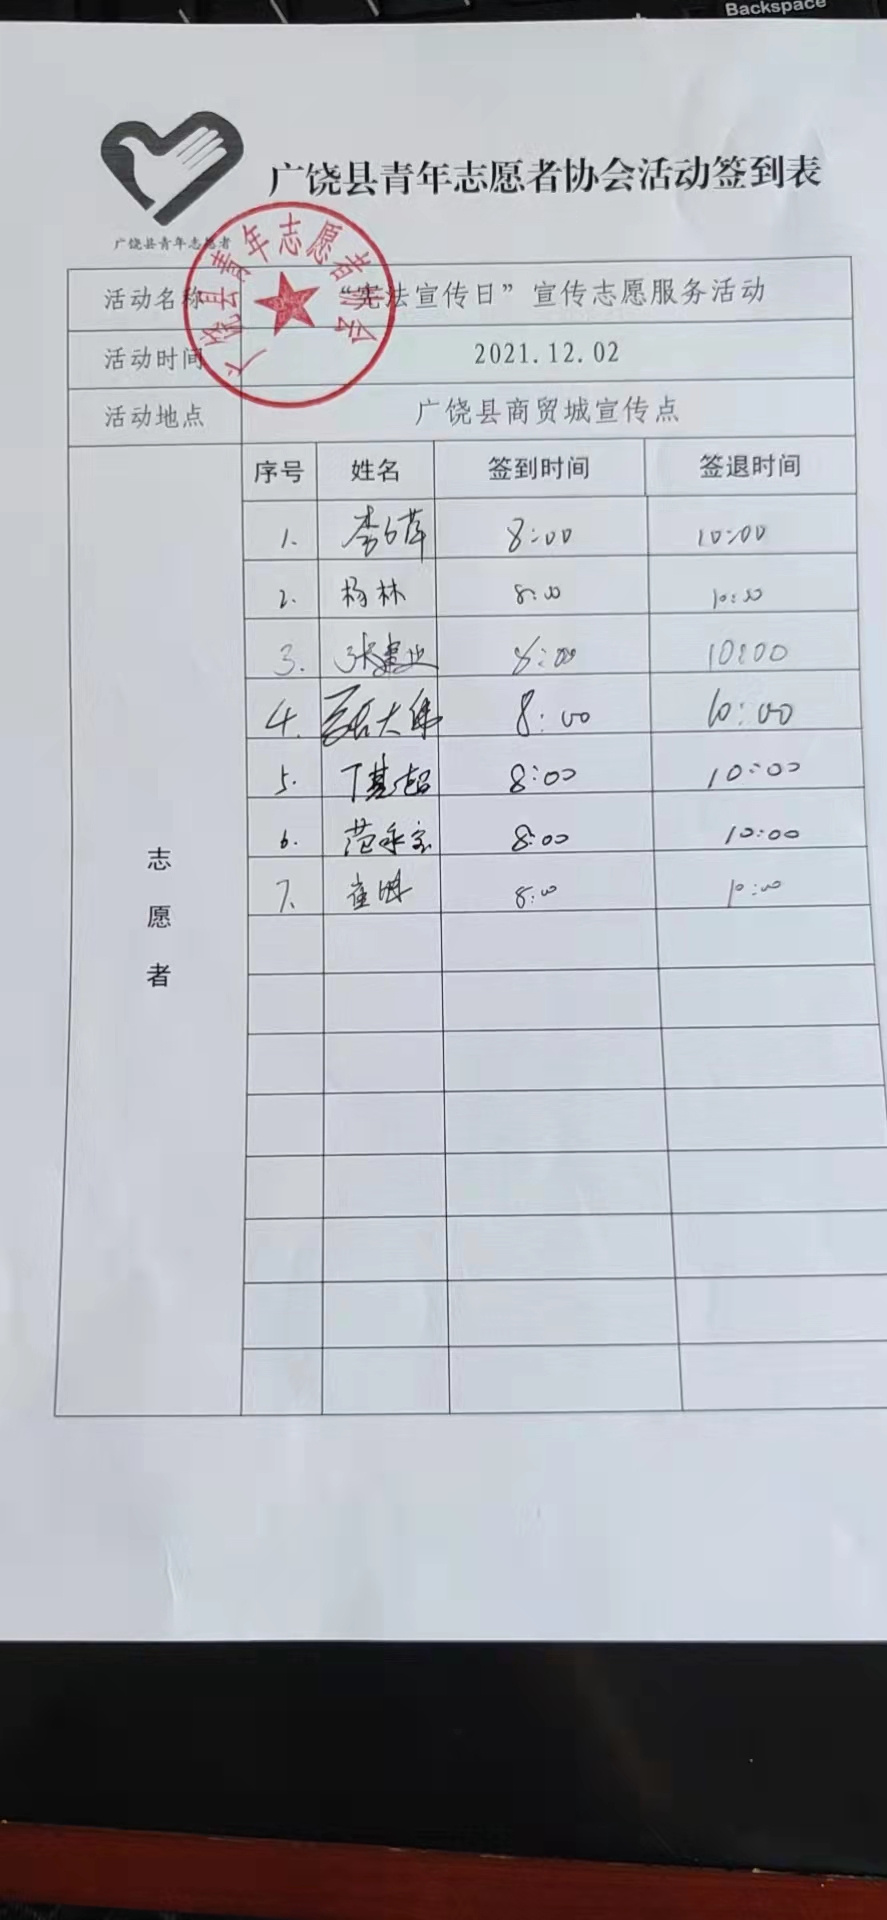 Backspace
广饶县青年志愿者协会活动签到表
广饶县青年志愿者
广饶县青年志愿者协会
活动名称 “宪法宣传日”宣传志愿服务活动
活动时间 2021.12.02
活动地点 广饶县商贸城宣传点
志愿者
序号 姓名 签到时间 签退时间
1. 8:00 10:00
2. 杨林 8:00 10:00
3. 张建业 8:00 10:00
4. 大伟 8:00 10:00
5. 丁基超 8:00 10:00
6. 范永宝 8:00 10:00
7. 崔 8:00 10:00